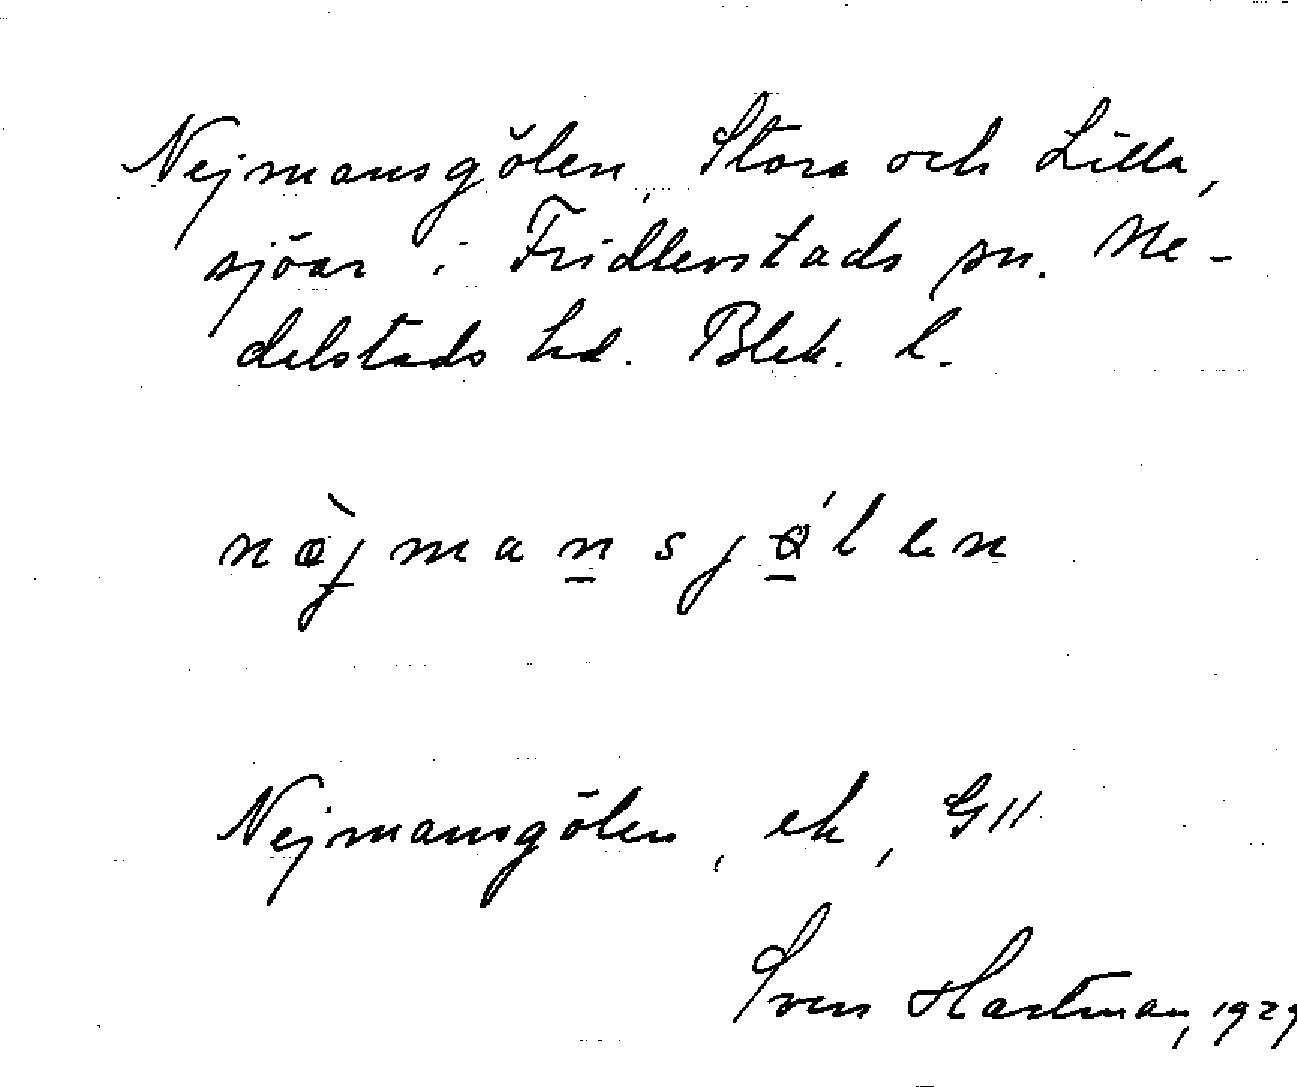 Nejmansgölen, Stora och Lilla,
sjöar i Fridlevstads sn. Me-
delstads hd. Blek. l.
Nejmansgölen, ek, GII
Sven Hartman, 1929